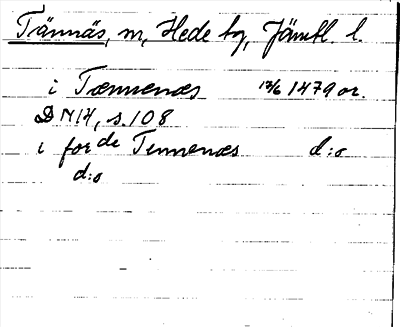 Tännäs, m, Hede tg, Jämtl. l.
i Tœnnenœs 12/6 1479 or.
DN 14, s. 108
i for de Tennenœs d:o
d:o